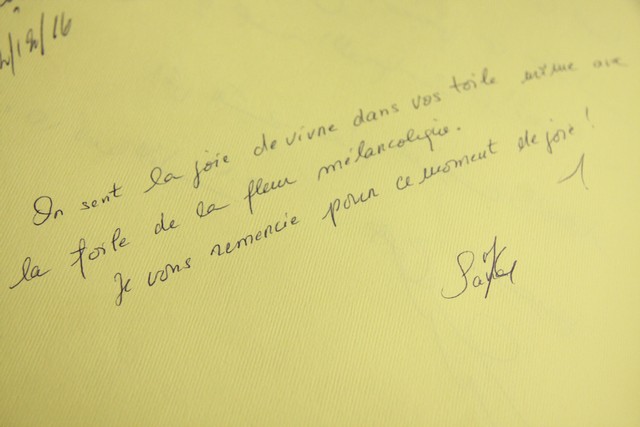 /12/16
On sent la joie de vivre dans vos toile même ave
la toile de la fleur mélancolique.
Je vous remercie pour ce moment de joie !